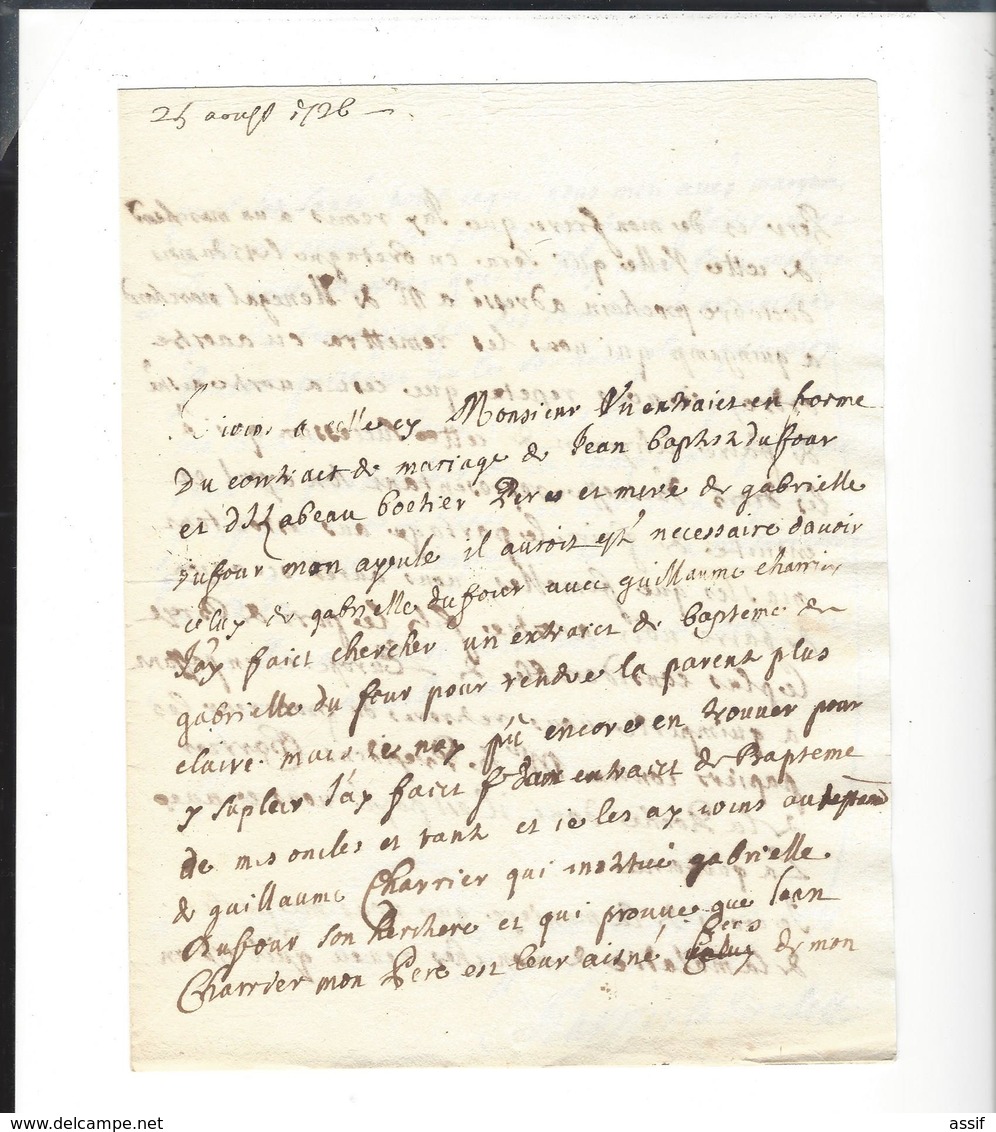 25 aoust 1726
Je joins a celle cy Monsieur Un extraict en forme
Du contract de mariage de Jean baptist duffour
et dIzabeau boehier Pere et mere de gabrielle
duffour mon ayeule il auroit est necessaire davoir
celuy de gabrielle duffour avec guillaume charrier
Jay faict chercher un extraict de bapteme de
gabrielle du four pour rendre la parent plus
claire. mais ie nay pu encore en trouver pour
y supleer Jay faict extraict de Bapteme
de mes oncles et tant et ie les ay joins au testam
de guillaume Charrier qui institue gabrielle
duffour son herthere et qui prouve que Jean
Charrier mon Pere est leur aisné Pere de mon
assif
www.delcampe.net